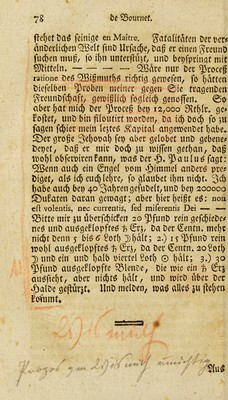 78 de Bournet.
stehet das seinige en Maitre. Fatalitäten der ver-
änderlichen Welt sind Ursache, daß er einen Freund
suchen muß, so ihn unterstützt, und beyspringt mit
Mitteln. — — — Wäre nur der Proceß
ratione des Wißmuths richtig gewesen, so hätten
dieselben Proben meiner gegen Sie tragenden
Freundschaft, gewißlich sogleich genossen. So
aber hat mich der Proceß bey 12,000 Rthlr. ge-
kostet, und bin filoutirt worden, da ich doch so zu
sagen schier mein leztes Kapital angewendet habe.
Der große Jehovah sey aber gelobt und gebene-
deyet, daß er mir doch zu wissen gethan, daß
wohl observiren kann, was der H. Paulus sagt:
Wenn auch ein Engel vom Himmel anders pre-
diget, als ich euch lehre, so glaubet ihm nicht. Ich
habe auch bey 40 Jahren gesudelt, und bey 200000
Dukaten daran gewagt; aber hier heißt es: non
est volentis, nec currentis, sed miserentis Dei — —
Bitte mir zu überschicken 20 Pfund rein geschiede-
nes und ausgeklopftes ♄ Erz, da der Centn. mehr
nicht denn 5 bis 6 Loth ☽ hält; 2.) 15 Pfund rein
wohl ausgeklopftes ♄ Erz, da der Centn. 20 Loth
☽ und ein und halb viertel Loth ☉ hält; 3.) 30
Pfund ausgeklopfte Blende, die wie ein ♄ Erz
aussieht, aber nichts hält, und wird über der
Halde gestürzt. Und melden, was alles zu stehen
kommt.
Wismuth
Prozeß zu Wismuth unrichtig
Aus